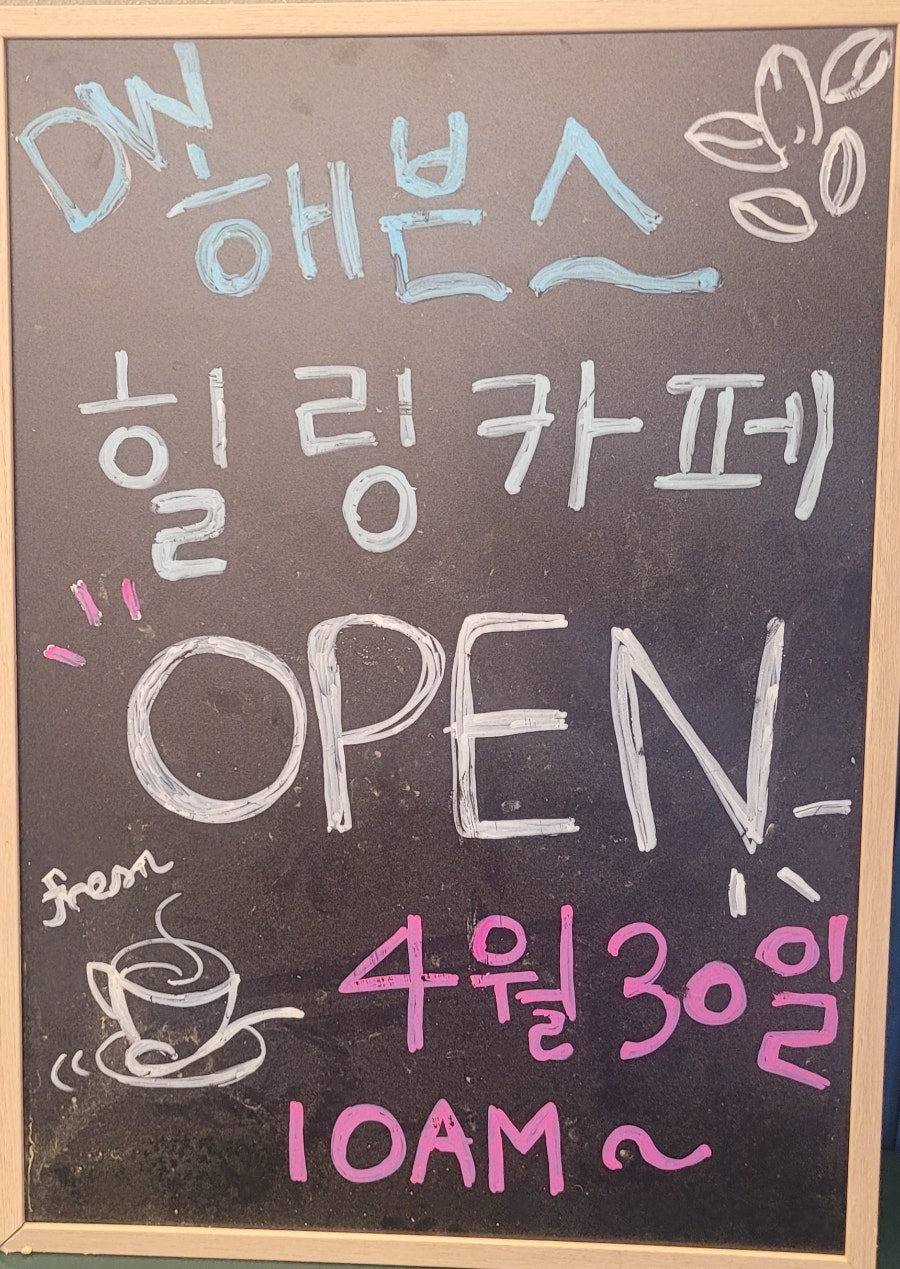 DW
해븐스
힐링카페
OPEN
fresh
4월 30일
10AM ~